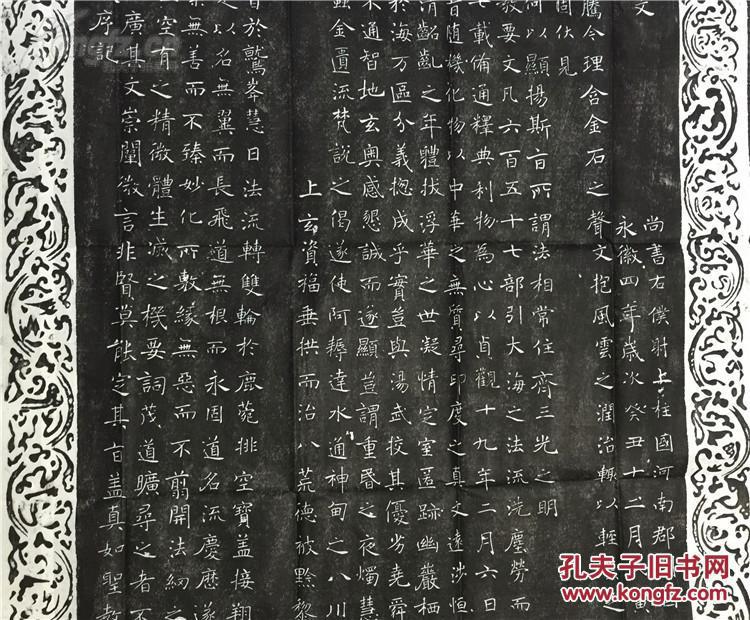 序記
廣其文崇闡微言非賢莫能定其旨盖真如聖教
空有之精微體生滅之機要詞茂道曠尋之者不
無善而不臻妙化所敷緣無惡而不翦開法網之
之以名無翼而長飛道無根而永固道名流慶歷遂
旨於鷲峯慧日法流轉雙輪於鹿菀排空寶蓋接翔
上玄資福垂拱而治八荒德被黔黎
金匱流梵說之偈遂使阿耨達水通神甸之八川
不通智地玄奧感懇誠而遂顯豈謂重昬之夜燭慧
於海万區分義揔成乎實豈與湯武挍其優劣堯舜
清齠齔之年體拔浮華之世凝情定室匿跡幽巖栖
旨隨機化物以中華之無質尋印度之真文遠涉恒
七載備通釋典利物為心以貞觀十九年二月六日
教要文凡六百五十七部引大海之法流洗塵勞而
何以顯揚斯旨所謂法相常住齊三光之明
固伏見
騰今理含金石之聲文抱風雲之潤治輒以輕
永徽四年歲次癸丑十二月
文
尚書右僕射上柱國河南郡
孔夫子旧书网
www.kongfz.com